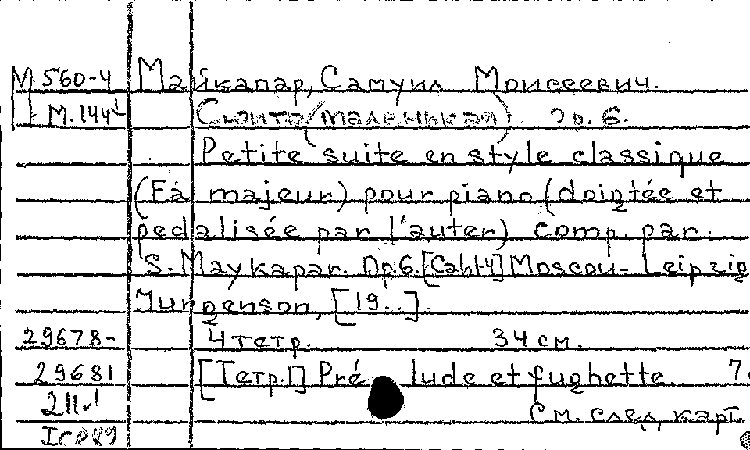 М 560-4 Майкапар, Самуил Моисеевич.
М.144 Сюита (маленькая) Ор. 6.
Petite suite en style classique
(Fa majeur) pour piano (doigtée et
pedalisée par l'auter) comp. par.
S. Maykapar. Op.6. [Cah1-4] Moscou - Leipzig
Jurgenson, [19..].
29678- 4 тетр. 34 см.
29681 [Тетр.I] Prélude et fughette. 7
211
См. след. карт.